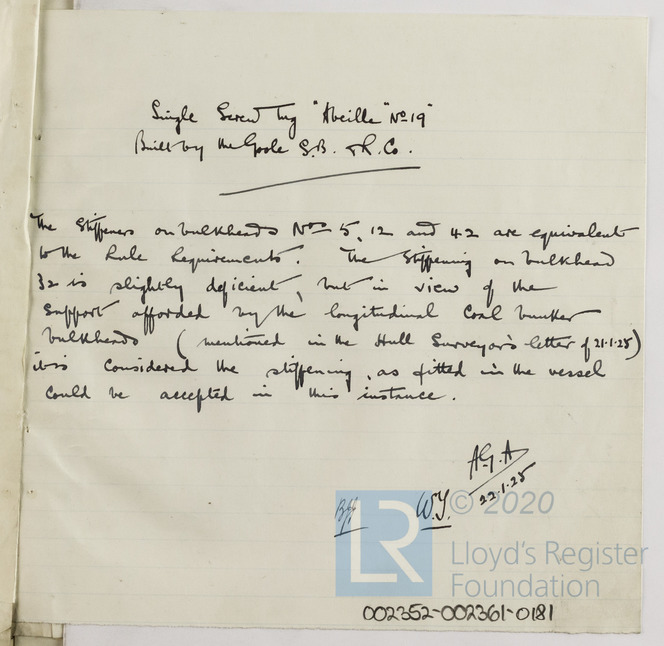 Single Screw Tug "Abeille" No. 19"
Built by the Goole S.B. & R. Co.
The stiffeners on bulkheads Nos 5, 12 and 42 are equivalent
to the Rule Requirements. The stiffening on bulkhead
32 is slightly deficient, but in view of the
support afforded by the longitudinal coal bunker
bulkheads (mentioned in the Hull Surveyor's letter of 21.1.25)
it is considered the stiffening, as fitted in the vessel
could be accepted in this instance.
A.G.A
22.1.25
W.Y.
© 2020
LR
Lloyd's Register
Foundation
002352-002361-0181